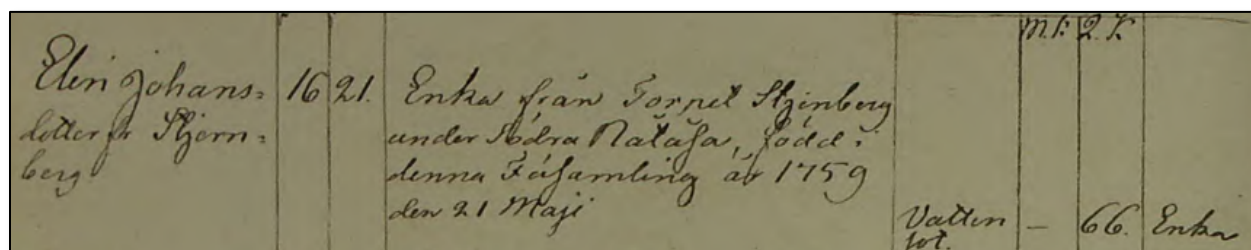 m. k. 2. K.
Elin Johans=
dotter fr Stjern=
berg
16 21.
Enka från Torpet Stjernberg
under Södra Rålåsa, född i
denna Församling år 1759
den 21 Maji
Vatten
sot.
— 66. Enka